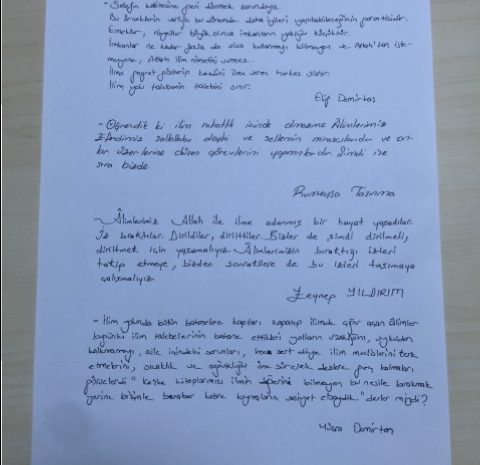 - Selefin kalitesine geri dönmek zorundayız.
Bu örneklerin varlığı bu dönemde daha iyileri yapılabileceğinin göstergesidir.
Emekler, niyetler büyük olunca imkanların yokluğu küçüktür.
İmkanlar ne kadar fazla da olsa kullanmayı bilmeyen ve Allah'tan iste-
meyene, Allah ilim nimetini vermez.
İlme gayret gösterip kendini ilme veren herkes
İlim yolu talebenin talebini sınar.
Elif Demirtaş
- Öğrendik ki ilim rahatlık içinde olmazmış. Alimlerimiz
Efendimiz sallallahu aleyhi ve sellemin mirasçılarıdır ve on-
lar üzerlerine düşen görevlerini yapmışlardır. Şimdi ise
sıra bizde.
Rumeysa
- Âlimlerimiz Allah ile ilme adanmış bir hayat yaşadılar.
İz bıraktılar. Dirildiler, dirilttiler. Bizler de şimdi dirilmeli,
diriltmek için yaşamalıyız. Âlimlerimizin bıraktığı izleri
takip etmeye, bizden sonrakilere de bu izleri taşımaya
çalışmalıyız.
Zeynep YILDIRIM
- İlim yolunda bütün bahanelere kapıları kapatıp ilimde çığır açan âlimler
bugünkü ilim talebelerinin bahane ettikleri yolların uzaklığını, uykudan
kalkmamayı, aile içindeki sorunları, hoca sert diye ilim meclislerini terk
etmelerini, sıcaklık ve soğukluğu öne sürerek derslere geç kalmaları
görselerdi "keşke kitaplarımızı ilmin değerini bilmeyen bu nesile bırakmak
yerine bizimle beraber kabre koymalarını vasiyet etseydik." derler miydi?
Demirtaş